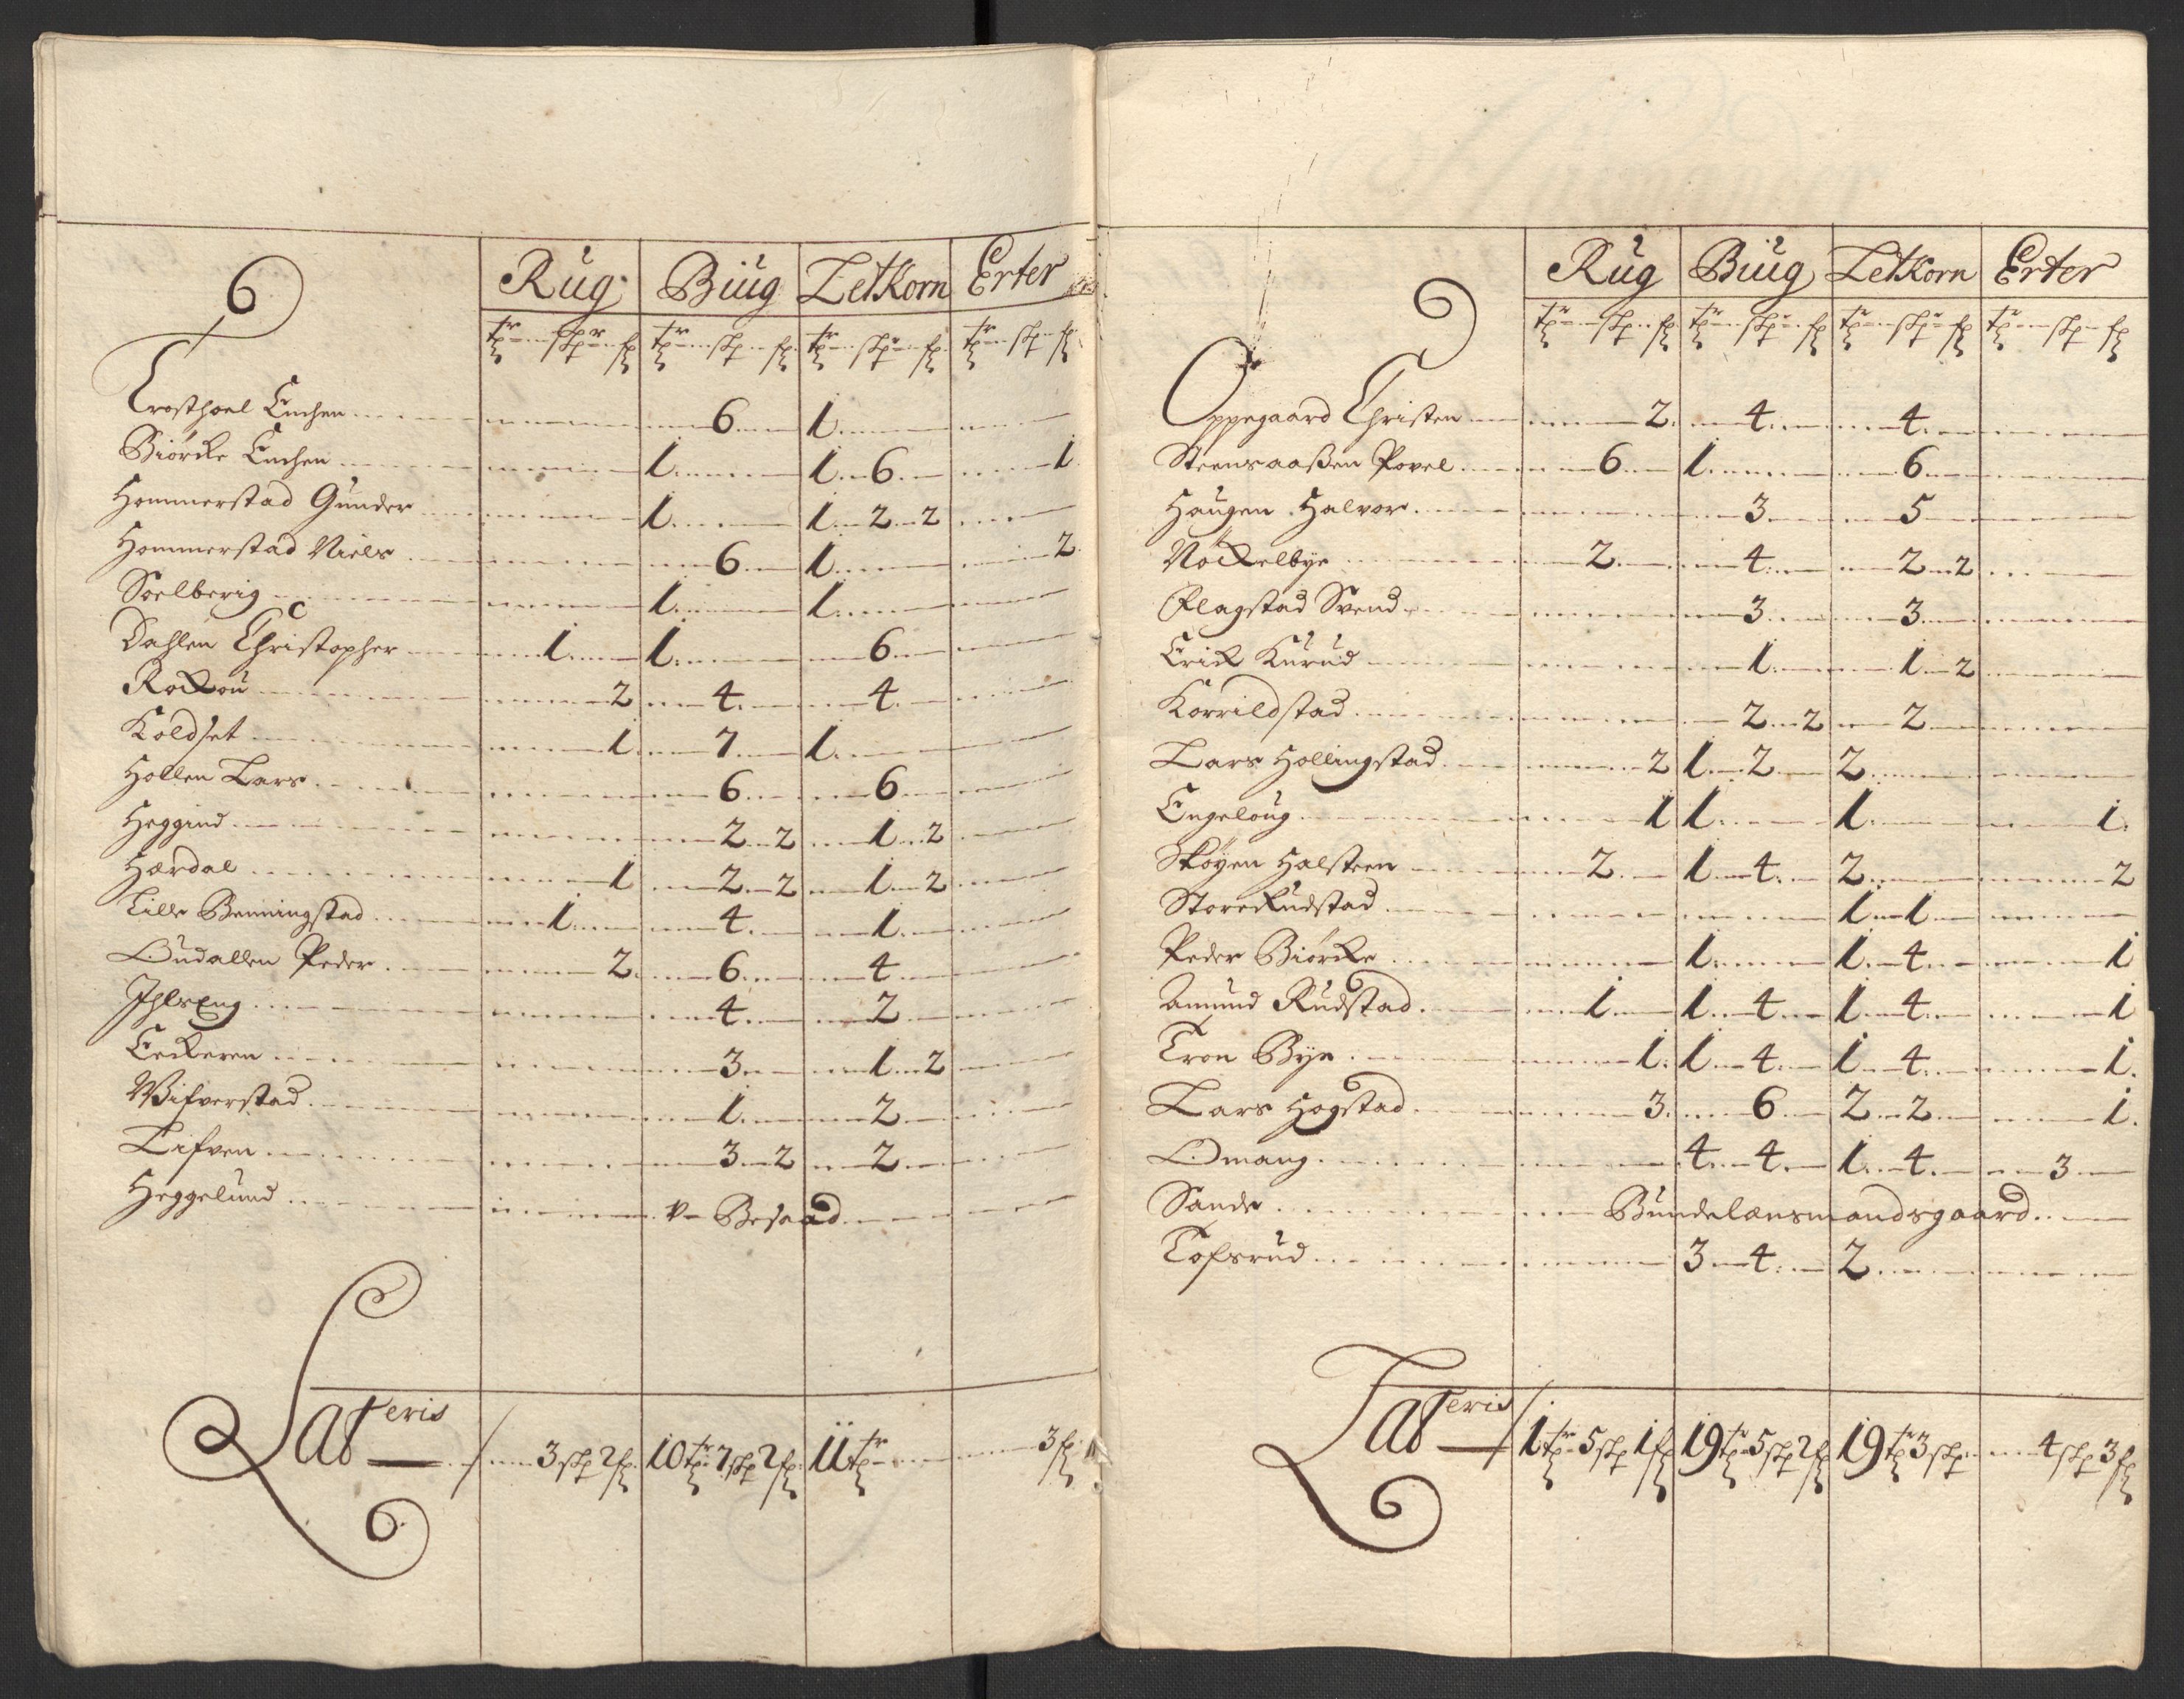 Rug Biug Letkorn Erter
tr skpr fr tr skp fr tr skpr fr tr skp fr
Trosthoel Enchen 6 1
Biörcke Enchen 1 1 6 1
Hommerstad Gunder 1 1 2 2
Hommerstad Niels 6 1 2
Soelberig 1 1
Dahlen Christopher 1 1 6
Rockou 2 4 4
Koldset 1 7 1
Hollen Lars 6 6
Heggind 2 2 1 2
Hærdal 1 2 2 1 2
Lille Benningstad 1 4 1
Oudallen Peder 2 6 4
Ihlseng 4 2
Eeckeren 3 1 2
Wifverstad 1 2
Lifven 3 2 2
Heggelund Besaad
Lateris 3 skp 2 f 10 tr 7 skp 2 f 11 tr 3 f
Rug Biug Letkorn Erter
tr skp f tr skp f tr skp f tr skp f
Oppegaard Christen 2 4 4
Steensaaßen Povel 6 1 6
Haugen Halvor 3 5
Nöckelbye 2 4 2 2
Flagstad Svend 3 3
Erick Kurud 1 1 2
Korrildstad 2 2 2
Lars Hollingstad 2 1 2 2
Engeloug 1 1 1 1
Skøyen Halsteen 2 1 4 2 2
Store Rudstad 1 1
Peder Biörcke 1 1 4 1
Amund Rudstad 1 1 4 1 4 1
Tron Bye 1 1 4 1 4 1
Lars Hogstad 3 6 2 2 1
Omang 4 4 1 4 3
Sande Bundelænsmandsgaard
Tofsrud 3 4 2
Lateris 1 tr 5 skp 1 f 19 tr 5 skp 2 f 19 tr 3 skp 4 skp 3 f